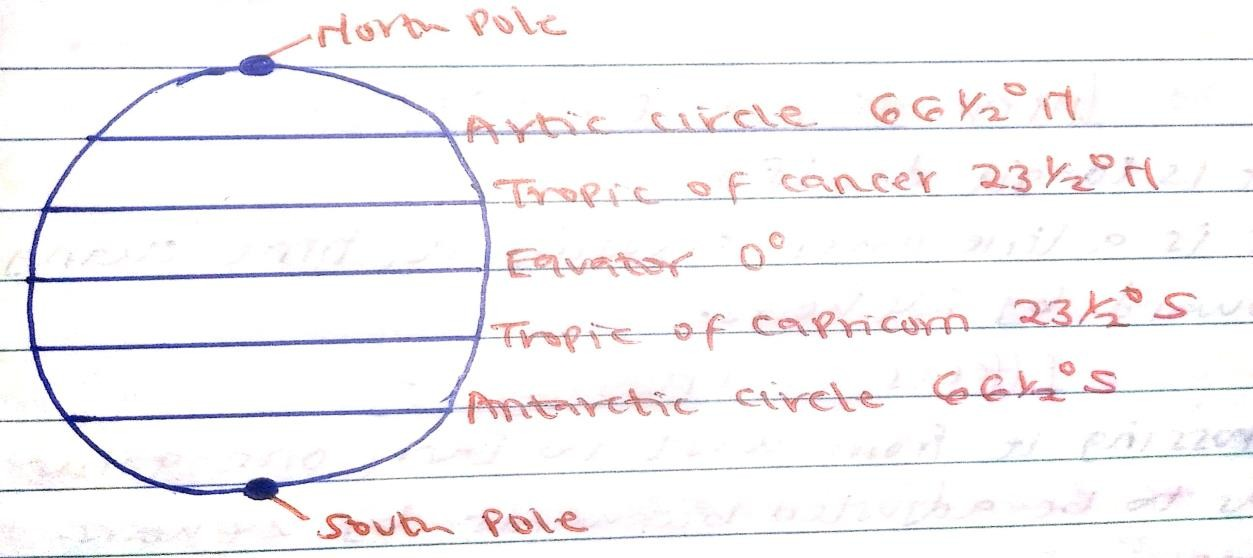 North Pole
Artic circle 66½° N
Tropic of cancer 23½° N
Equator 0°
Tropic of Capricorn 23½° S
Antarctic circle 66½° S
South Pole